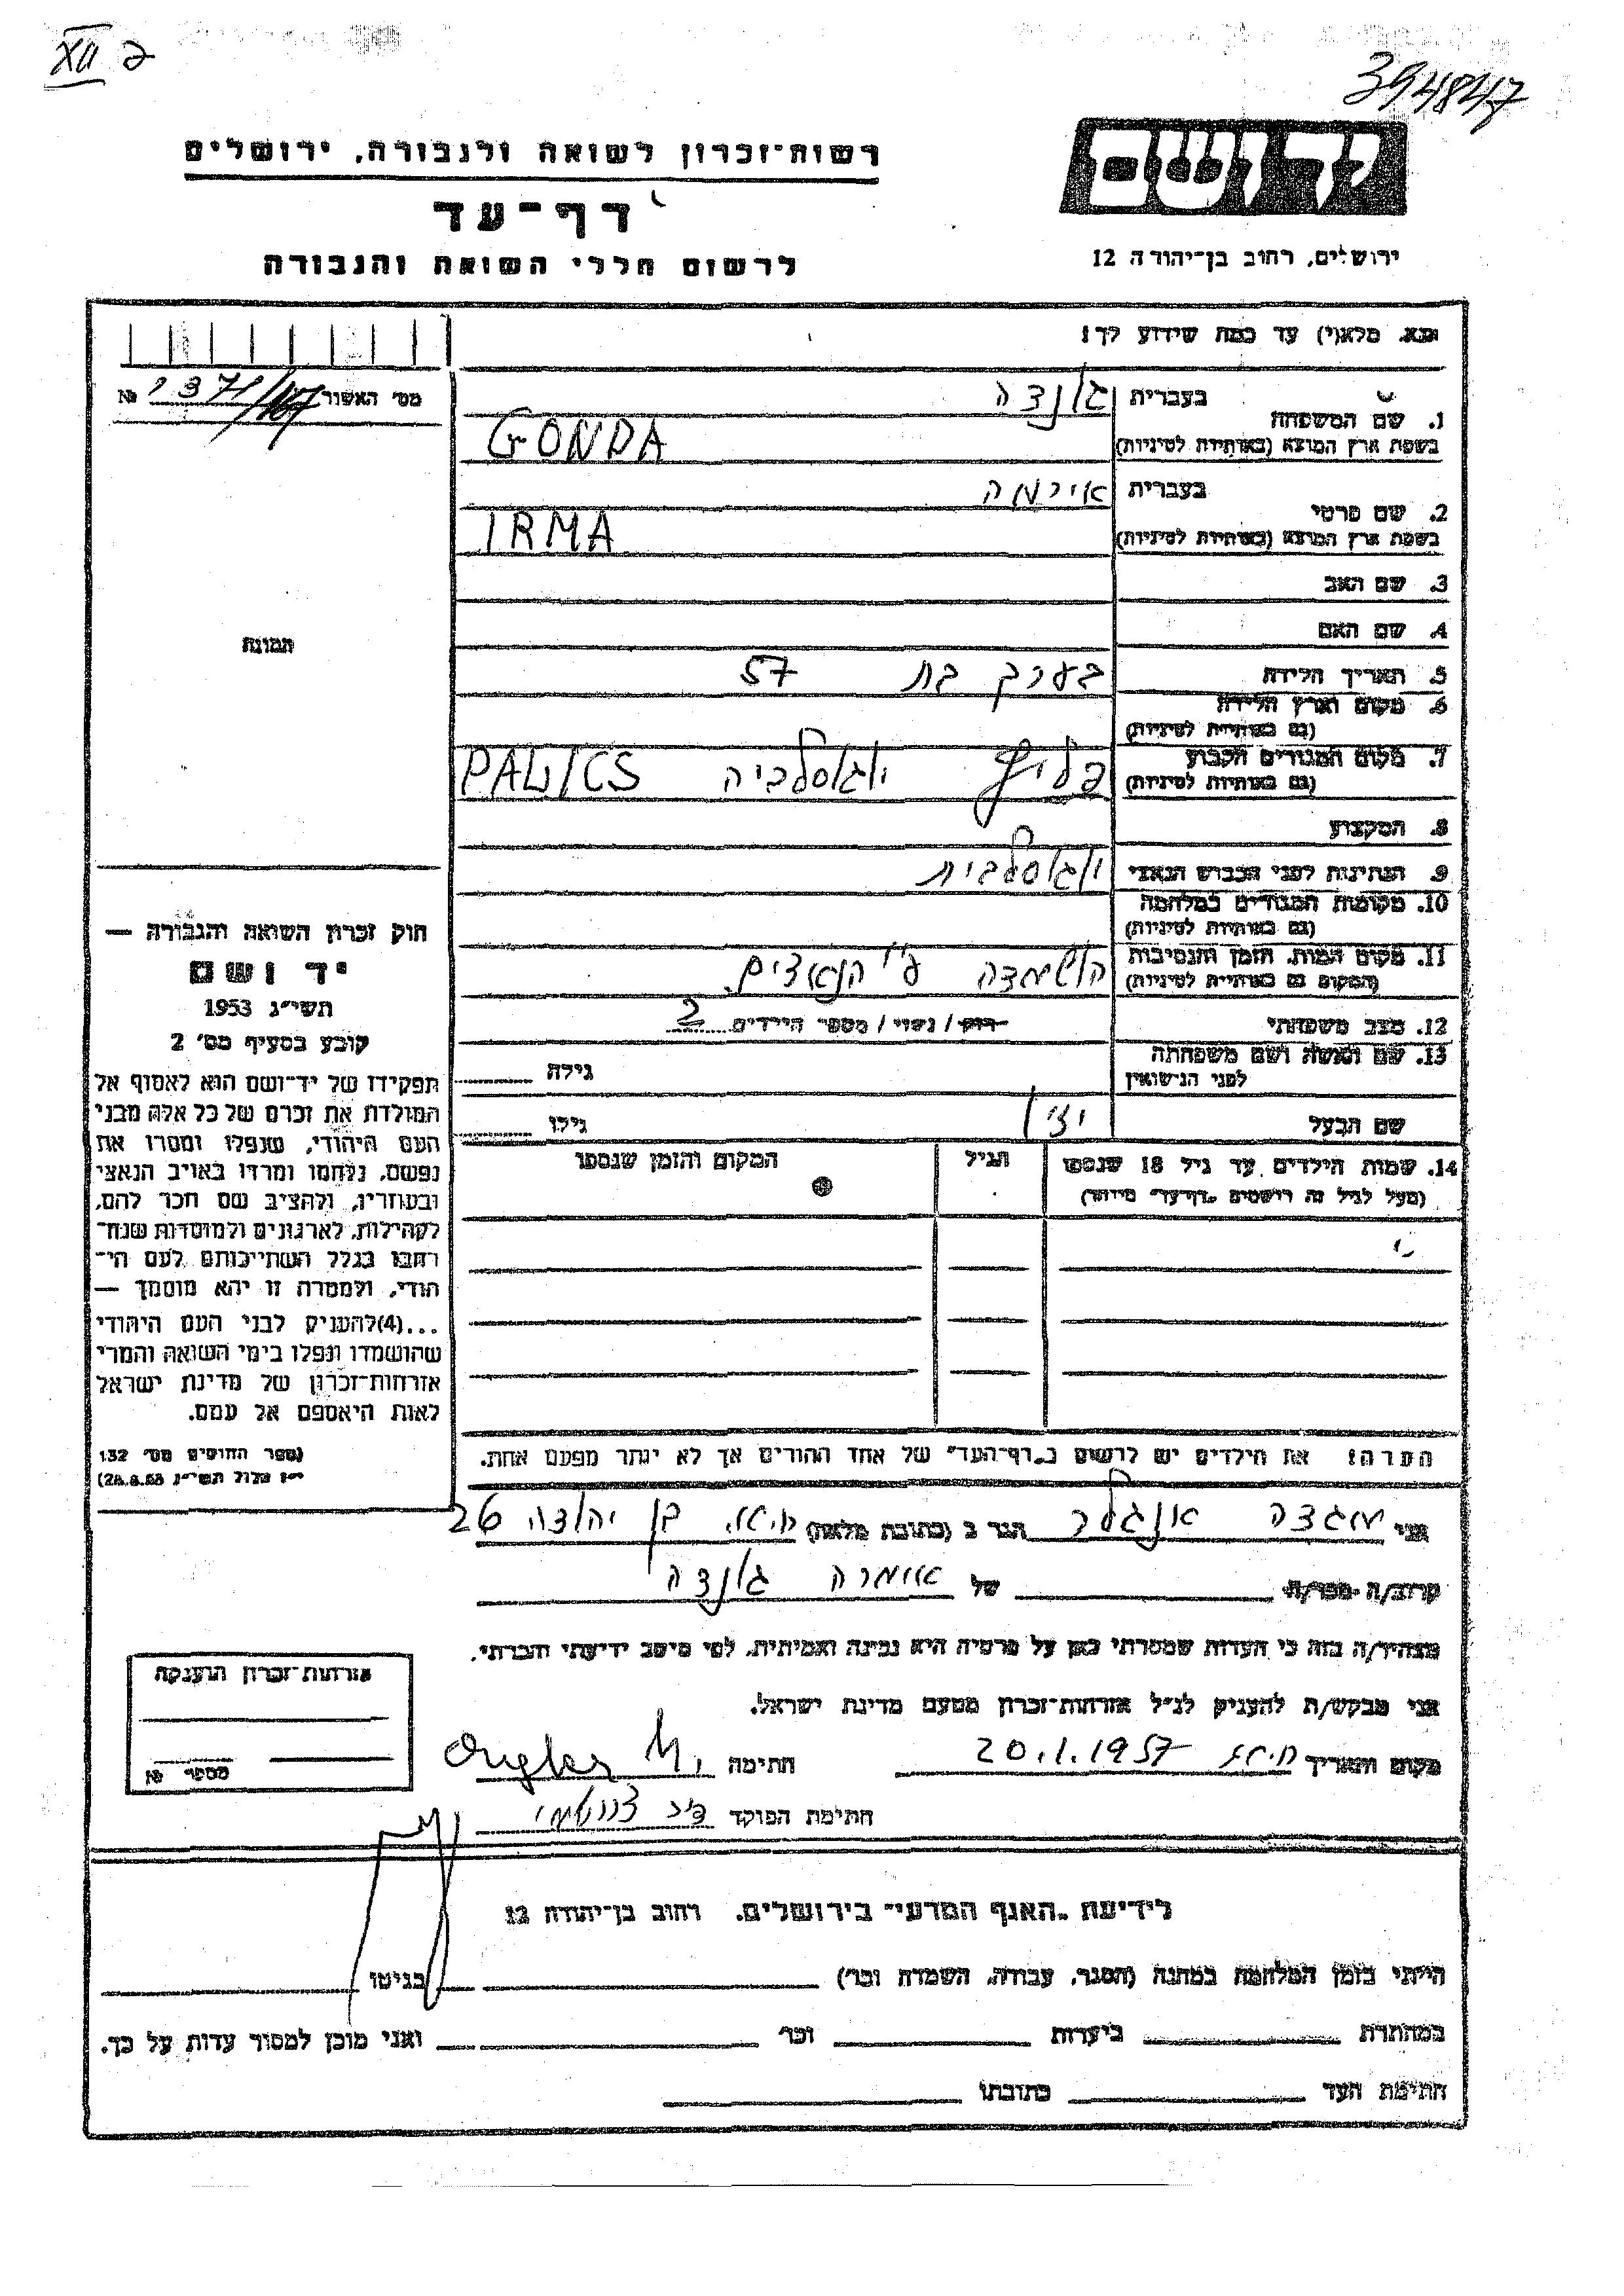 XII ב
394847
יד ושם
רשות־זכרון לשואה ולגבורה, ירושלים
דף־עד
לרשום חללי השואה והגבורה
ירושלים, רחוב בן־יהודה 12
נא. מלא(י) עד כמה שידוע לך!
מס׳ האשור №
1. שם המשפחה בעברית גונדה
בשפת ארץ המוצא (באותיות לטיניות) GONDA
2. שם פרטי בעברית אירמה
בשפת ארץ המוצא (באותיות לטיניות) IRMA
3. שם האב
4. שם האם
תמונה
5. תאריך הלידה בערך בת 57
6. מקום וארץ הלידה
(גם באותיות לטיניות)
7. מקום המגורים הקבוע פליץ יוגוסלביה PALICS
(גם באותיות לטיניות)
8. המקצוע
9. הנתינות לפני הכבוש הנאצי יוגוסלבית
10. מקומות המגורים במלחמה
(גם באותיות לטיניות)
11. מקום המות, הזמן והנסיבות הושמדה ע״י הנאצים.
(המקום גם באותיות לטיניות)
12. מצב משפחתי רווק / נשוי / מספר הילדים 2
13. שם האשה ושם משפחתה
לפני הנישואין גילה
שם הבעל גילו
14. שמות הילדים עד גיל 18 שנספו הגיל המקום והזמן שנספו
(מעל לגיל זה רושמים „דף־עד״ מיוחד)
חוק זכרון השואה והגבורה —
יד ושם
תשי״ג 1953
קובע בסעיף מס׳ 2
תפקידו של יד־ושם הוא לאסוף אל
המולדת את זכרם של כל אלה מבני
העם היהודי, שנפלו ומסרו את
נפשם, נלחמו ומרדו באויב הנאצי
ובעוזריו, ולהציב שם וזכר להם,
לקהילות, לארגונים ולמוסדות שנח־
רבו בגלל השתייכותם לעם הי־
הודי, ולמטרה זו יהא מוסמך —
...(4)להעניק לבני העם היהודי
שהושמדו ונפלו בימי השואה והמרי
אזרחות־זכרון של מדינת ישראל
לאות היאספם אל עמם.
(ספר החוקים מס׳ 132
י״ז אלול תשי״ג 28.8.53)
הערה! את הילדים יש לרשום ב„דף־העד״ של אחד ההורים אך לא יותר מפעם אחת.
אני מגדה אנגלר הגר ב (כתובת מלאה) חיפה, בן יהודה 26
קרוב/ה מכר/ה של אירמה גונדה
מצהיר/ה בזה כי העדות שמסרתי כאן על פרטיה היא נכונה ואמיתית, לפי מיטב ידיעתי והכרתי.
אני מבקש/ת להעניק לנ״ל אזרחות־זכרון מטעם מדינת ישראל.
מקום ותאריך חיפה 20.1.1957 חתימה
חתימת הפוקד
אזרחות־זכרון הוענקה
מספר №
לידיעת „האגף המדעי״ בירושלים. רחוב בן־יהודה 12
הייתי בזמן המלחמה במחנה (הסגר, עבודה, השמדה וכו׳) בגיטו
במחתרת ביערות וכו׳ ואני מוכן למסור עדות על כך.
חתימת העד כתובתו